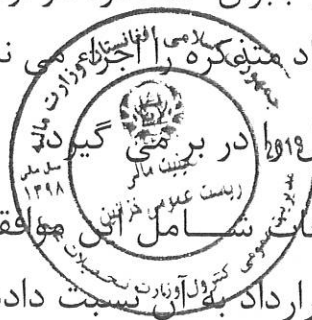 اد متذکره را اجراء می ن
را در بر می گیرد
ات شامل این موافق
رارداد به آن نسبت داد
جمهوری اسلامی افغانستان وزارت مالیه
سال مالی
۱۳۹۸
2019
معینیت مالی
ریاست عمومی خزاین
مدیریت عمومی کنترول وزارت تحصیلات